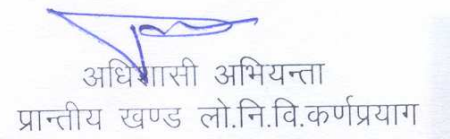 अधिशासी अभियन्ता
प्रान्तीय खण्ड लो.नि.वि.कर्णप्रयाग